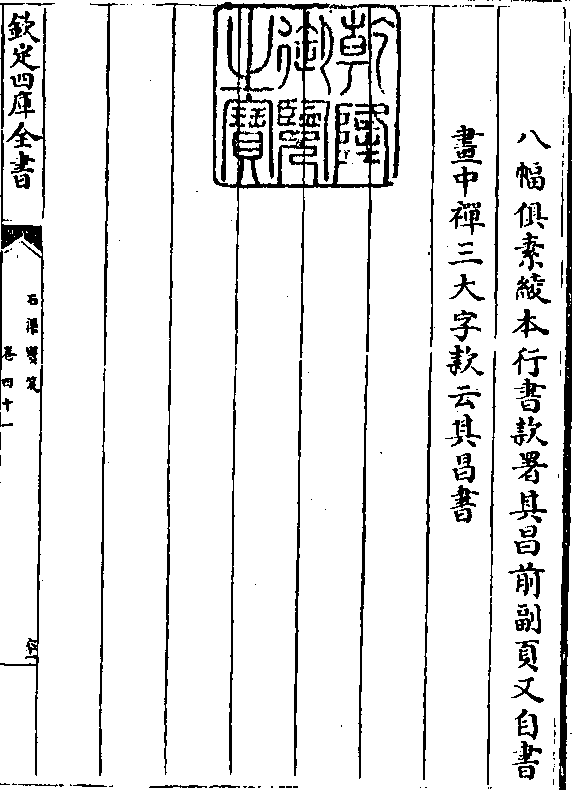 八幅俱素綾本行書款署其昌前副頁又自書
畫中禪三大字款云其昌書
乾隆
御覽
之寶
欽定四庫全書
石渠寶笈
卷四十一